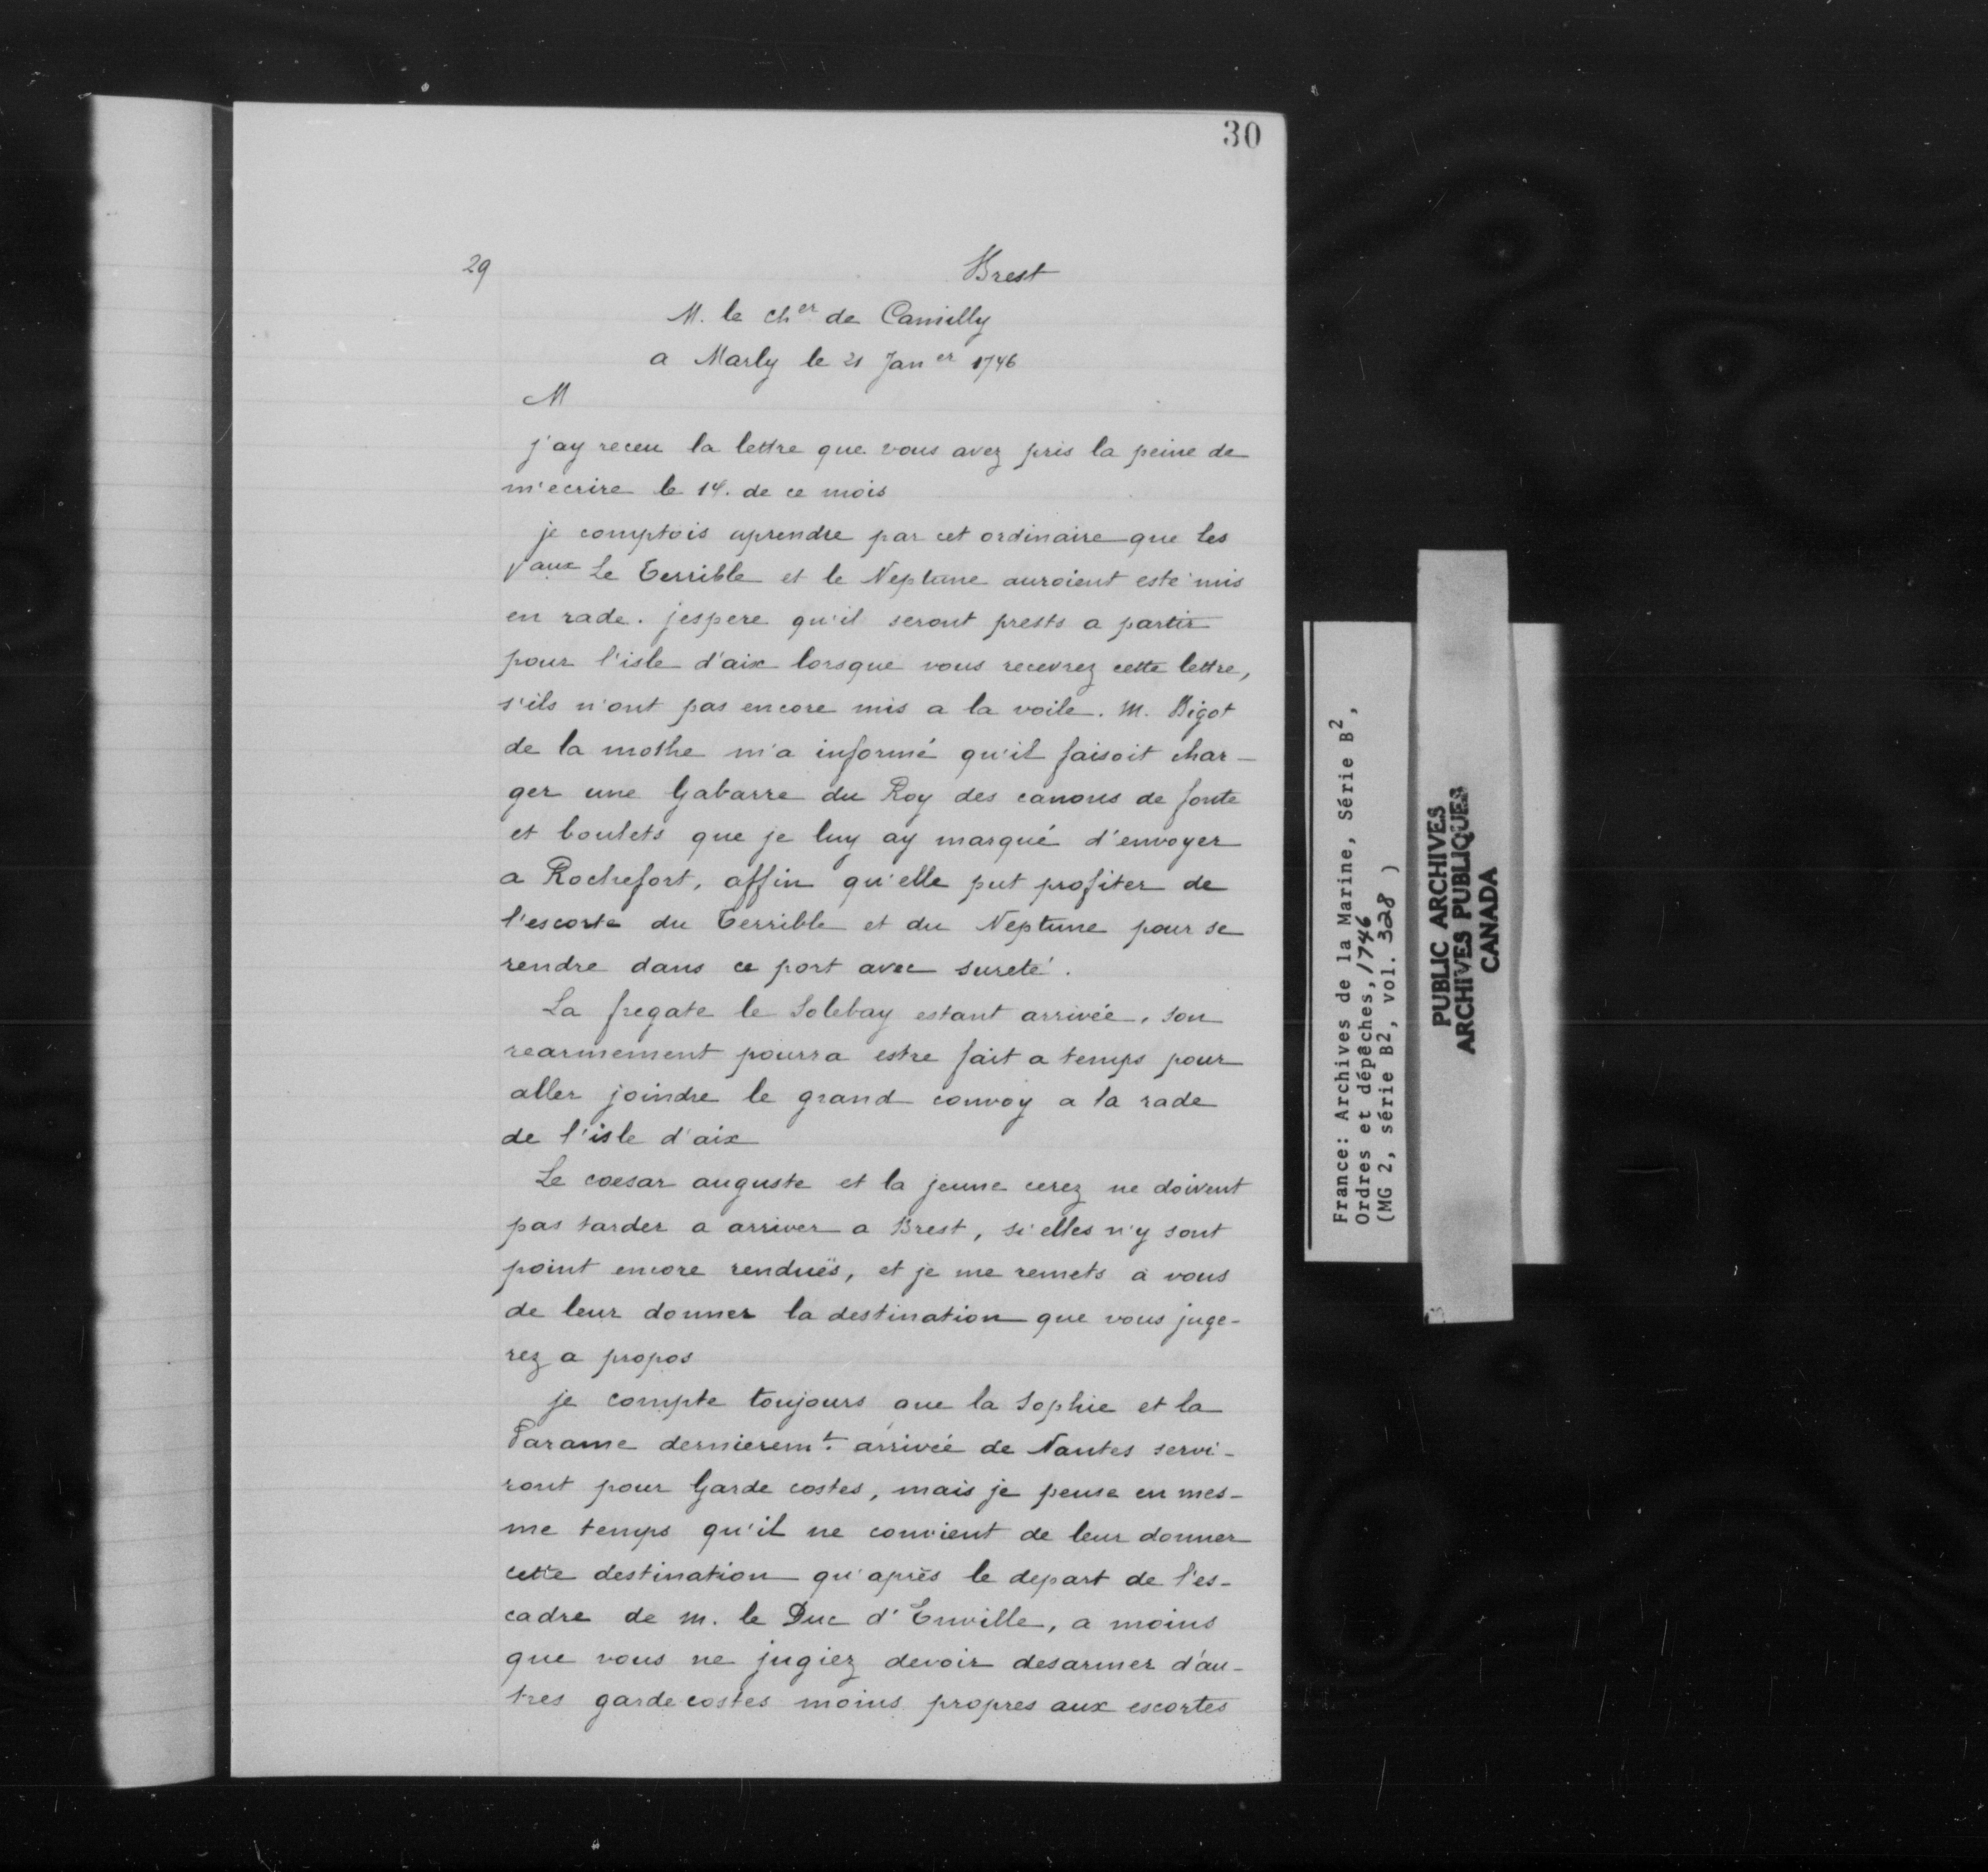 30
29
Brest
M. le cher de Camilly
a Marly le 21 Janer 1746
M
j'ay receu la lettre que vous avez pris la peine de
m'ecrire le 14. de ce mois
je comptois aprendre par cet ordinaire que les
Vaux Le Terrible et le Neptune auroient esté mis
en rade. jespere qu'il seront prests a partir
pour l'isle d'aix lorsque vous recevrez cette lettre,
s'ils n'ont pas encore mis a la voile. M. Bigot
de la mothe m'a informé qu'il faisoit char-
ger une Gabarre du Roy des canons de fonte
et boulets que je luy ay marqué d'envoyer
a Rochefort, affin qu'elle put profiter de
l'escorte du Terrible et du Neptune pour se
rendre dans ce port avec sureté.
La fregate le Solebay estant arrivée, son
rearmement pourra estre fait a temps pour
aller joindre le grand convoy a la rade
de l'isle d'aix
Le coesar auguste et la jeune cerez ne doivent
pas tarder a arriver a Brest, si elles n'y sont
point encore renduës, et je me remets à vous
de leur donner la destination que vous juge-
rez a propos
je compte toujours que la Sophie et la
Parame dernieremt. arrivée de Nantes servi-
ront pour Garde costes, mais je pense en mes-
me temps qu'il ne convient de leur donner
cette destination qu'après le depart de l'es-
cadre de m. le Duc d'Enville, a moins
que vous ne jugiez devoir desarmer d'au-
tres gardecostes moins propres aux escortes
France: Archives de la Marine, Série B2,
Ordres et dépêches, 1746
(MG 2, série B2, vol. 328 )
PUBLIC ARCHIVES
ARCHIVES PUBLIQUES
CANADA